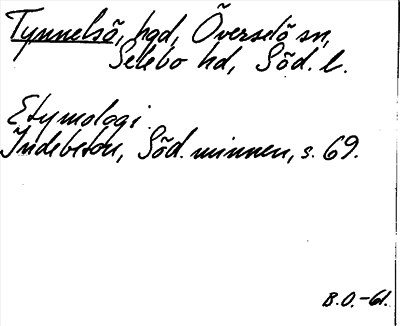 Tynnelsö, hgd, Överselö sn,
Selebo hd, Söd. l.
Etymologi.
Indebetou, Söd. minnen, s. 69.
B.O.-61.